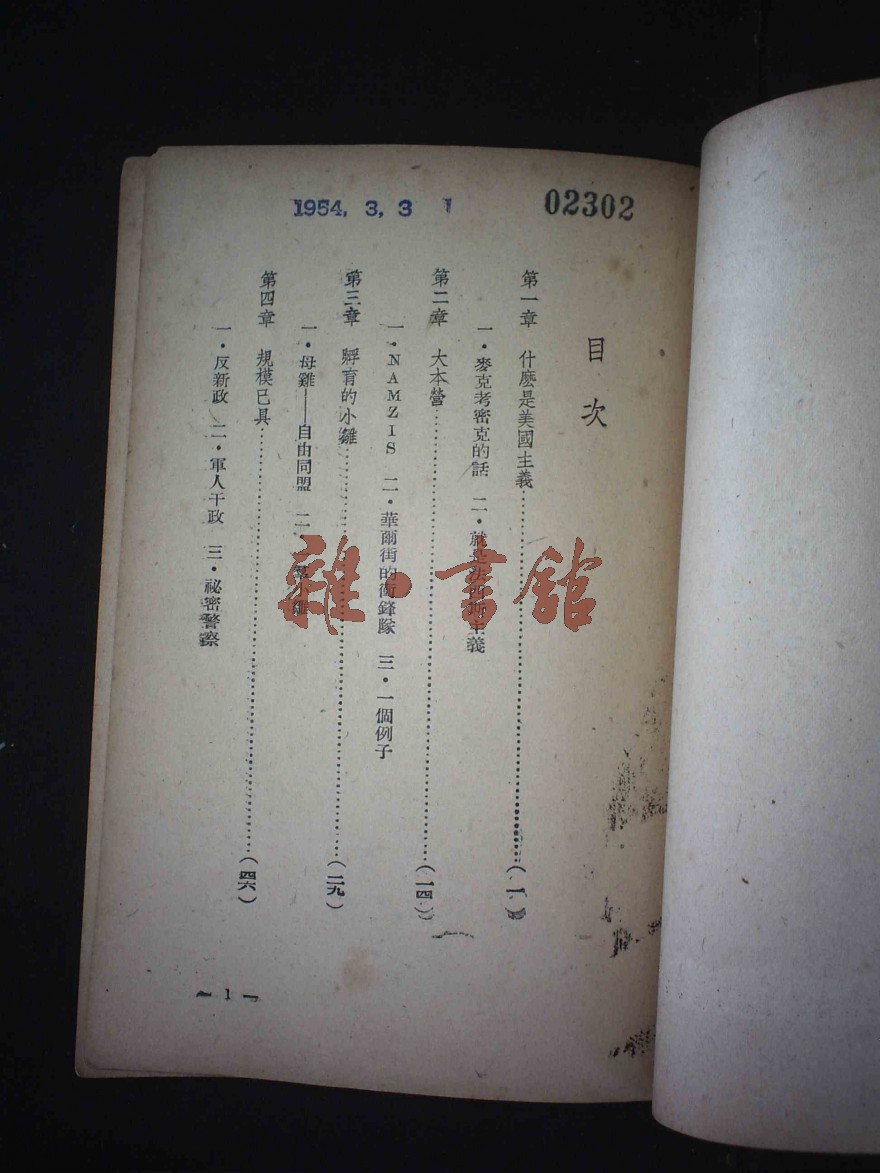 1954. 3. 3
02302
目次
第一章 什麽是美國主義……(一)
一・麥克考密克的話 二・就是法西斯主義
第二章 大本營……(一四)
一・NAMZIS 二・華爾街的衝鋒隊 三・一個例子
第三章 孵育的小雞……(二九)
一・母雞——自由同盟 二・小雞
第四章 規模已具……(四六)
一・反新政 二・軍人干政 三・祕密警察
— 1 —
雜・書館